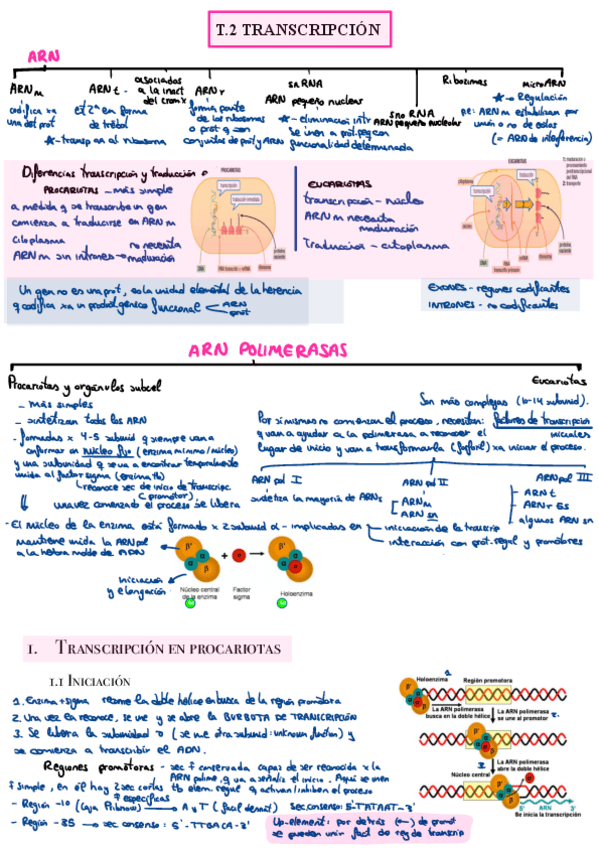 T.2 TRANSCRIPCIÓN
ARN
ARNm
codifica xa
una det prot
ARNt
est 2ª en forma
de trébol
* transp aa al ribosoma
asociados
a la inact
del crom x
ARNr
forma parte
de los ribosomas
o prot q son
conjuntos de prot y ARN
snRNA
ARN pequeño nuclear
* eliminación intr
se unen a prot peq con
funcionalidad determinada
sno RNA
ARN pequeño nucleolar
Ribozimas
microARN
* Regulación
pe: ARNm estabilizan por
unión o no de estos
(= ARN de interferencia)
Diferencias transcripción y traducción
PROCARIOTAS - más simple
a medida q se transcribe un gen
comienza a traducirse en ARNm
citoplasma
ARNm sin intrones → no necesita
maduración
PROCARIOTAS
EUCARIOTAS
transcripción - núcleo
ARNm necesita
maduración
Traducción - citoplasma
EUCARIOTAS
Un gen no es una prot, es la unidad elemental de la herencia
q codifica xa un producto génico funcional
ARN
prot
EXONES - regiones codificantes
INTRONES - no codificantes
ARN POLIMERASAS
Procariotas y orgánulos subcel
- más simples
- sintetizan todos los ARN
- formadas x 4-5 subunid q siempre van a
conformar un núcleo fijo (enzima mínimo/núcleo)
y una subunidad q se va a encontrar temporalmente
unida al factor sigma
(reconoce sec de inicio de transcripc
(promotor)
una vez comenzado el proceso se libera
- El núcleo de la enzima está formado x 2 subunid α - implicadas en
iniciación de la transcrip
interacción con prot. regul y promotores
mantiene unida la ARN pol
a la hebra molde de ADN
Iniciación
y elongación
β'
α
α
β
+
σ
Núcleo central
de la enzima
Factor
sigma
Holoenzima
Eucariotas
Son más complejas (10-14 subunid).
Por si mismas no comienzan el proceso, necesitan: factores de transcripción
iniciales
q van a ayudar a la polimerasa a reconocer el
lugar de inicio y van a transformarla (fosforil) xa iniciar el proceso.
ARN pol I
sintetiza la mayoría de ARNr
ARN pol II
ARNm
ARN sn
ARN pol III
ARN t
ARN r 5s
algunos ARN sn
1. TRANSCRIPCIÓN EN PROCARIOTAS
1.1 INICIACIÓN
1. Enzima + sigma recorre la doble hélice en busca de la región promotora
2. Una vez la reconoce, se une y se abre la BURBUJA DE TRANSCRIPCIÓN
3. Se libera la subunidad σ (se une otra subunid: unknown function) y
se comienza a transcribir el ADN.
Regiones promotoras - sec + conservada capaz de ser reconocida x la
ARN polime, q va a señaliz el inicio. Aquí se unen
tb elem regul q activan/inhiben el proceso
+ simple, en ella hay 2 sec cortas
+ específicas
- Región -10 (caja Pribnow) → A y T (fácil desnat) sec consenso: 5'-TATAAT-3'
- Región -35 → sec consenso: 5'-TTGACA-3'
Up-element: por detrás (←) de promot
se pueden unir fact de reg de transcrip
Holoenzima
Región promotora
La ARN polimerasa
busca en la doble hélice
La ARN polimerasa
se une al promotor
La ARN polimerasa
abre la doble hélice
Núcleo central
ARN
Se inicia la transcripción